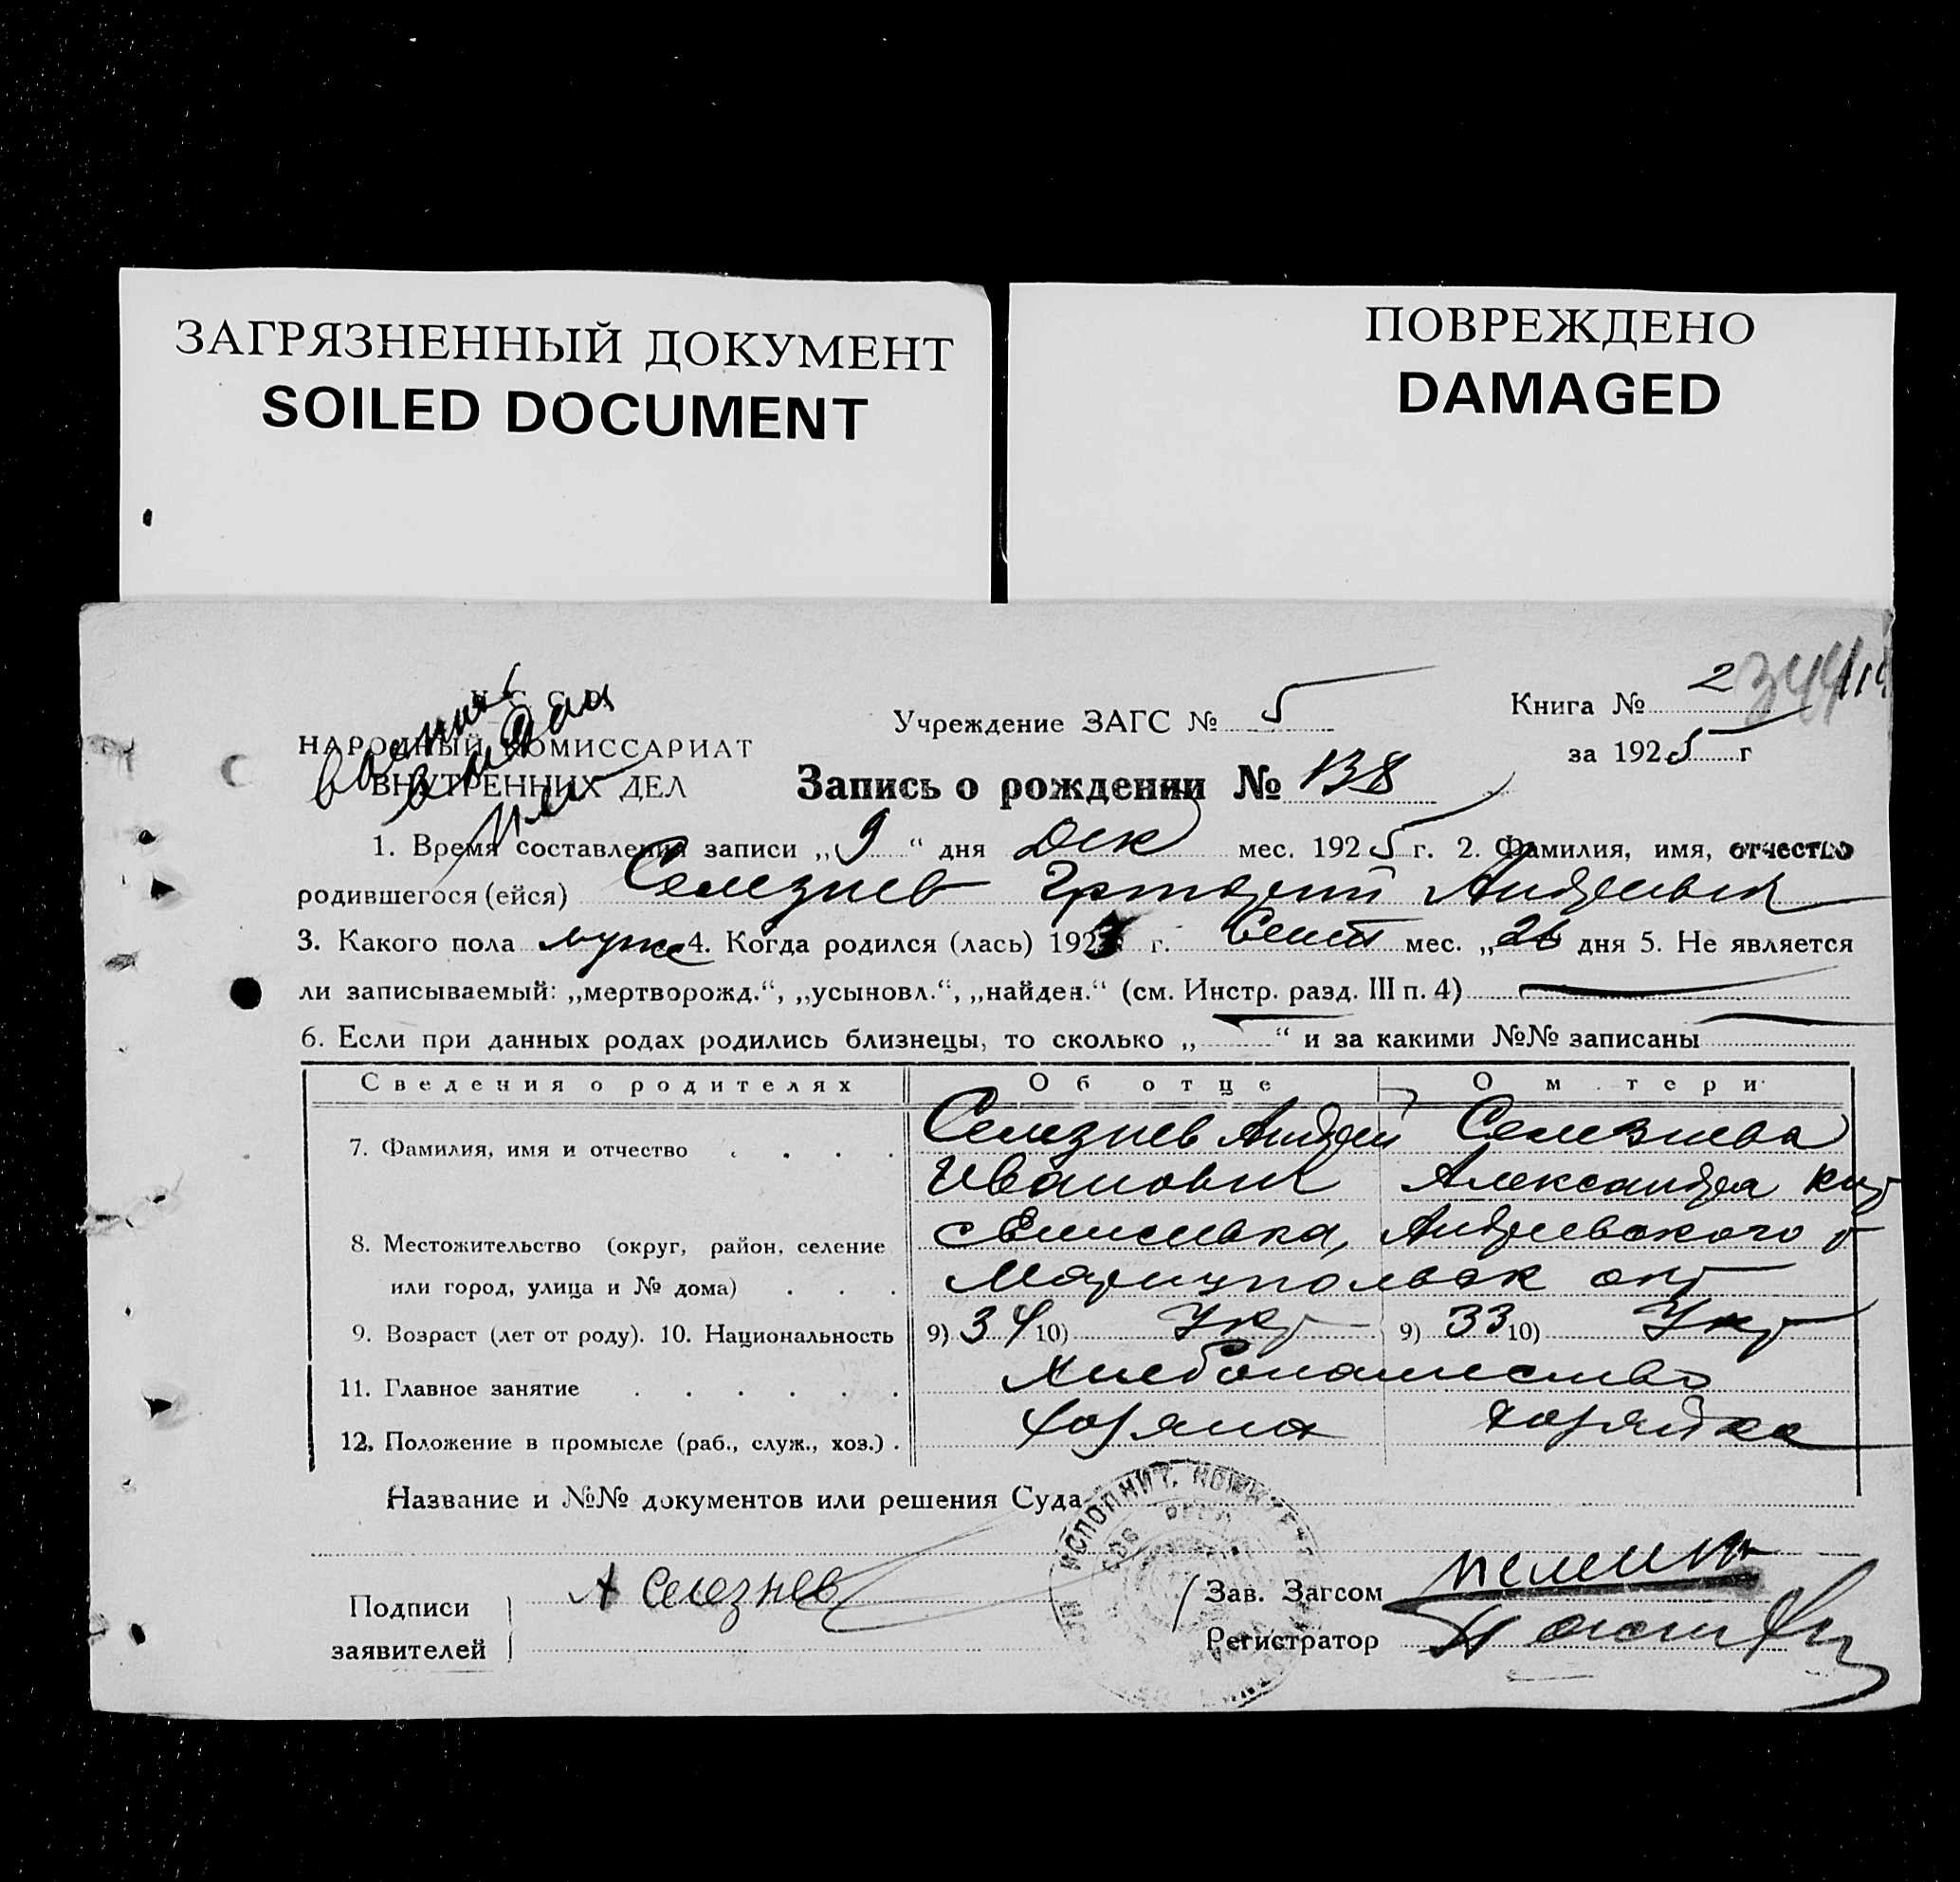 ЗАГРЯЗНЕННЫЙ ДОКУМЕНТ
SOILED DOCUMENT
ПОВРЕЖДЕНО
DAMAGED
НАРОДНЫЙ КОМИССАРИАТ
ВНУТРЕННИХ ДЕЛ
Учреждение ЗАГС № 5
Книга № 2
344
за 1925 г
Запись о рождении № 138
1. Время составления записи „9“ дня Дек мес. 1925 г. 2. Фамилия, имя, отчество
родившегося (ейся) Селезнев Григорий Андреевич
3. Какого пола муж 4. Когда родился (лась) 192 г. Сент мес. „26 дня 5. Не является
ли записываемый: „мертворожд.“, „усыновл.“, „найден.“ (см. Инстр. разд. III п. 4)
6. Если при данных родах родились близнецы, то сколько „ “ и за какими №№ записаны
Сведения о родителях Об отце О м тери
7. Фамилия, имя и отчество Селезнев Андрей Селезнева
Иванович Александра
8. Местожительство (округ, район, селение Андреевского
или город, улица и № дома) Мариупольск окр
9. Возраст (лет от роду). 10. Национальность 9) 34 10) Укр 9) 33 10) Укр
11. Главное занятие Хлебопашество
12. Положение в промысле (раб., служ., хоз.) Хозяин Хозяйка
Название и №№ документов или решения Суда
ИСПОЛНИТ. КОМИТЕТ
Подписи А Селезнев Зав. Загсом
заявителей Регистратор